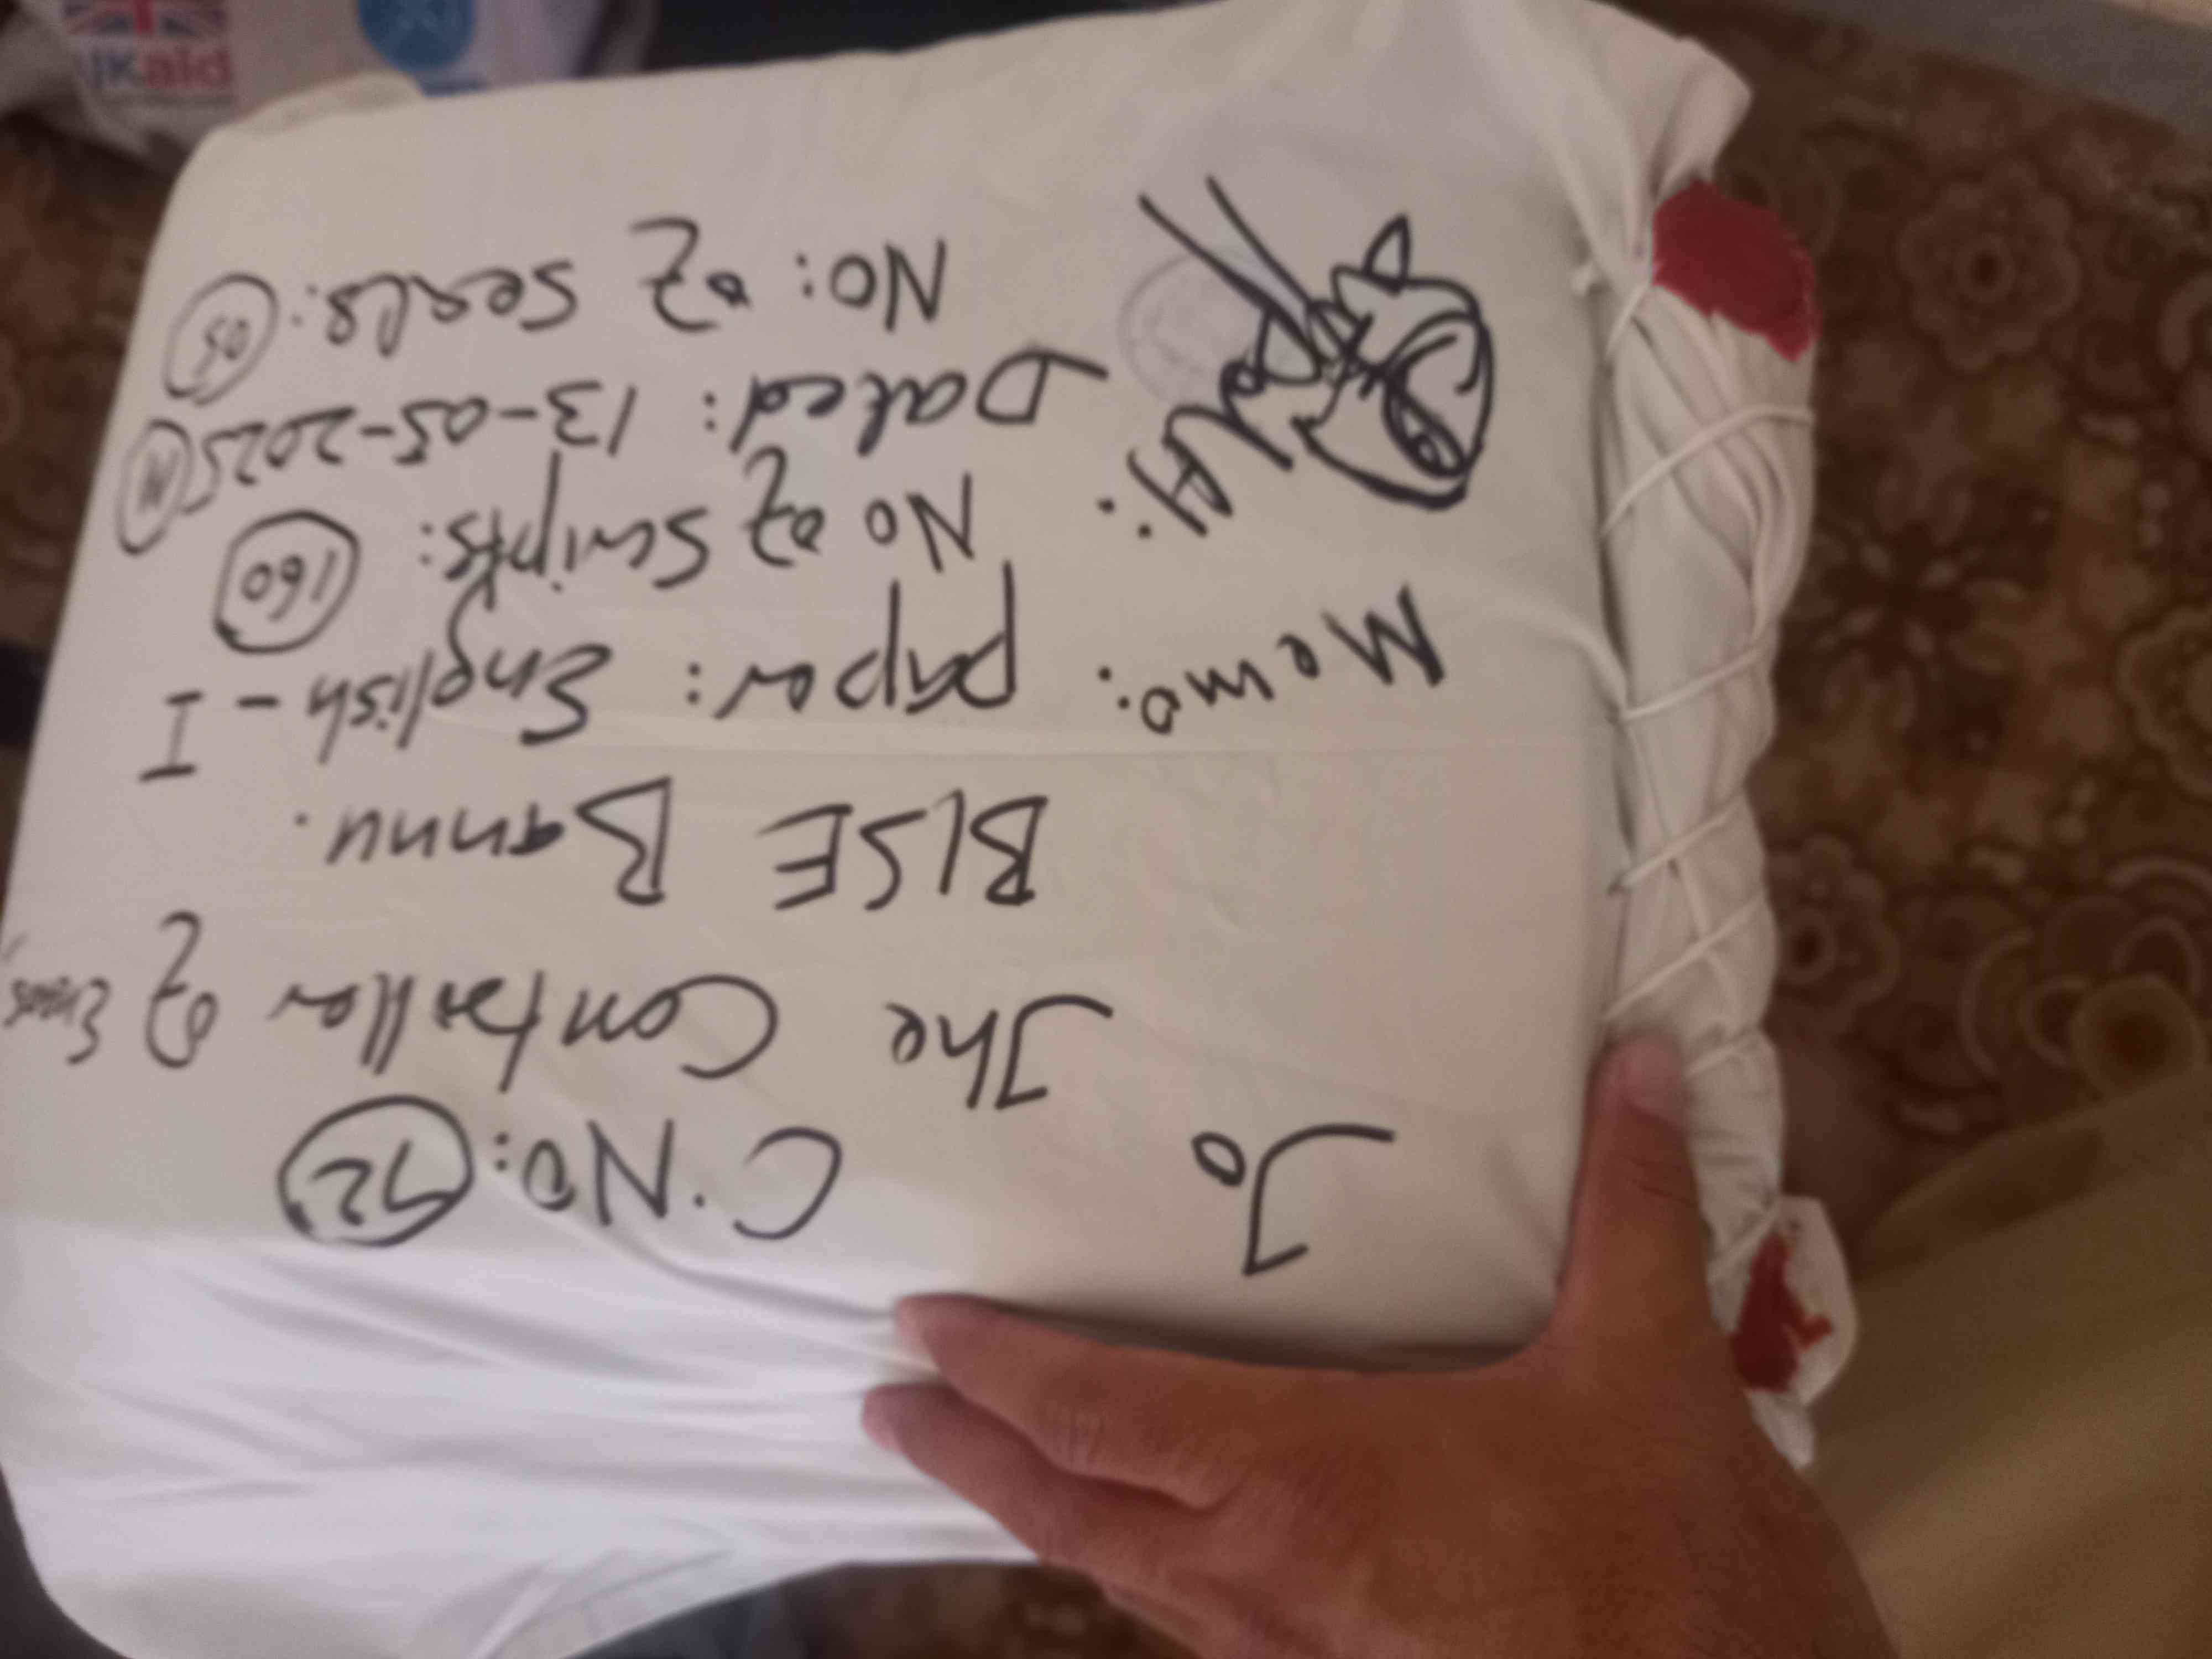 To
C.NO: 72
The Controller of Exams,
BISE Bannu.
Memo: paper: English - I
No of Scripts: 160
Dated: 13-05-2025 M
NO: of Seals: 05
UKaid